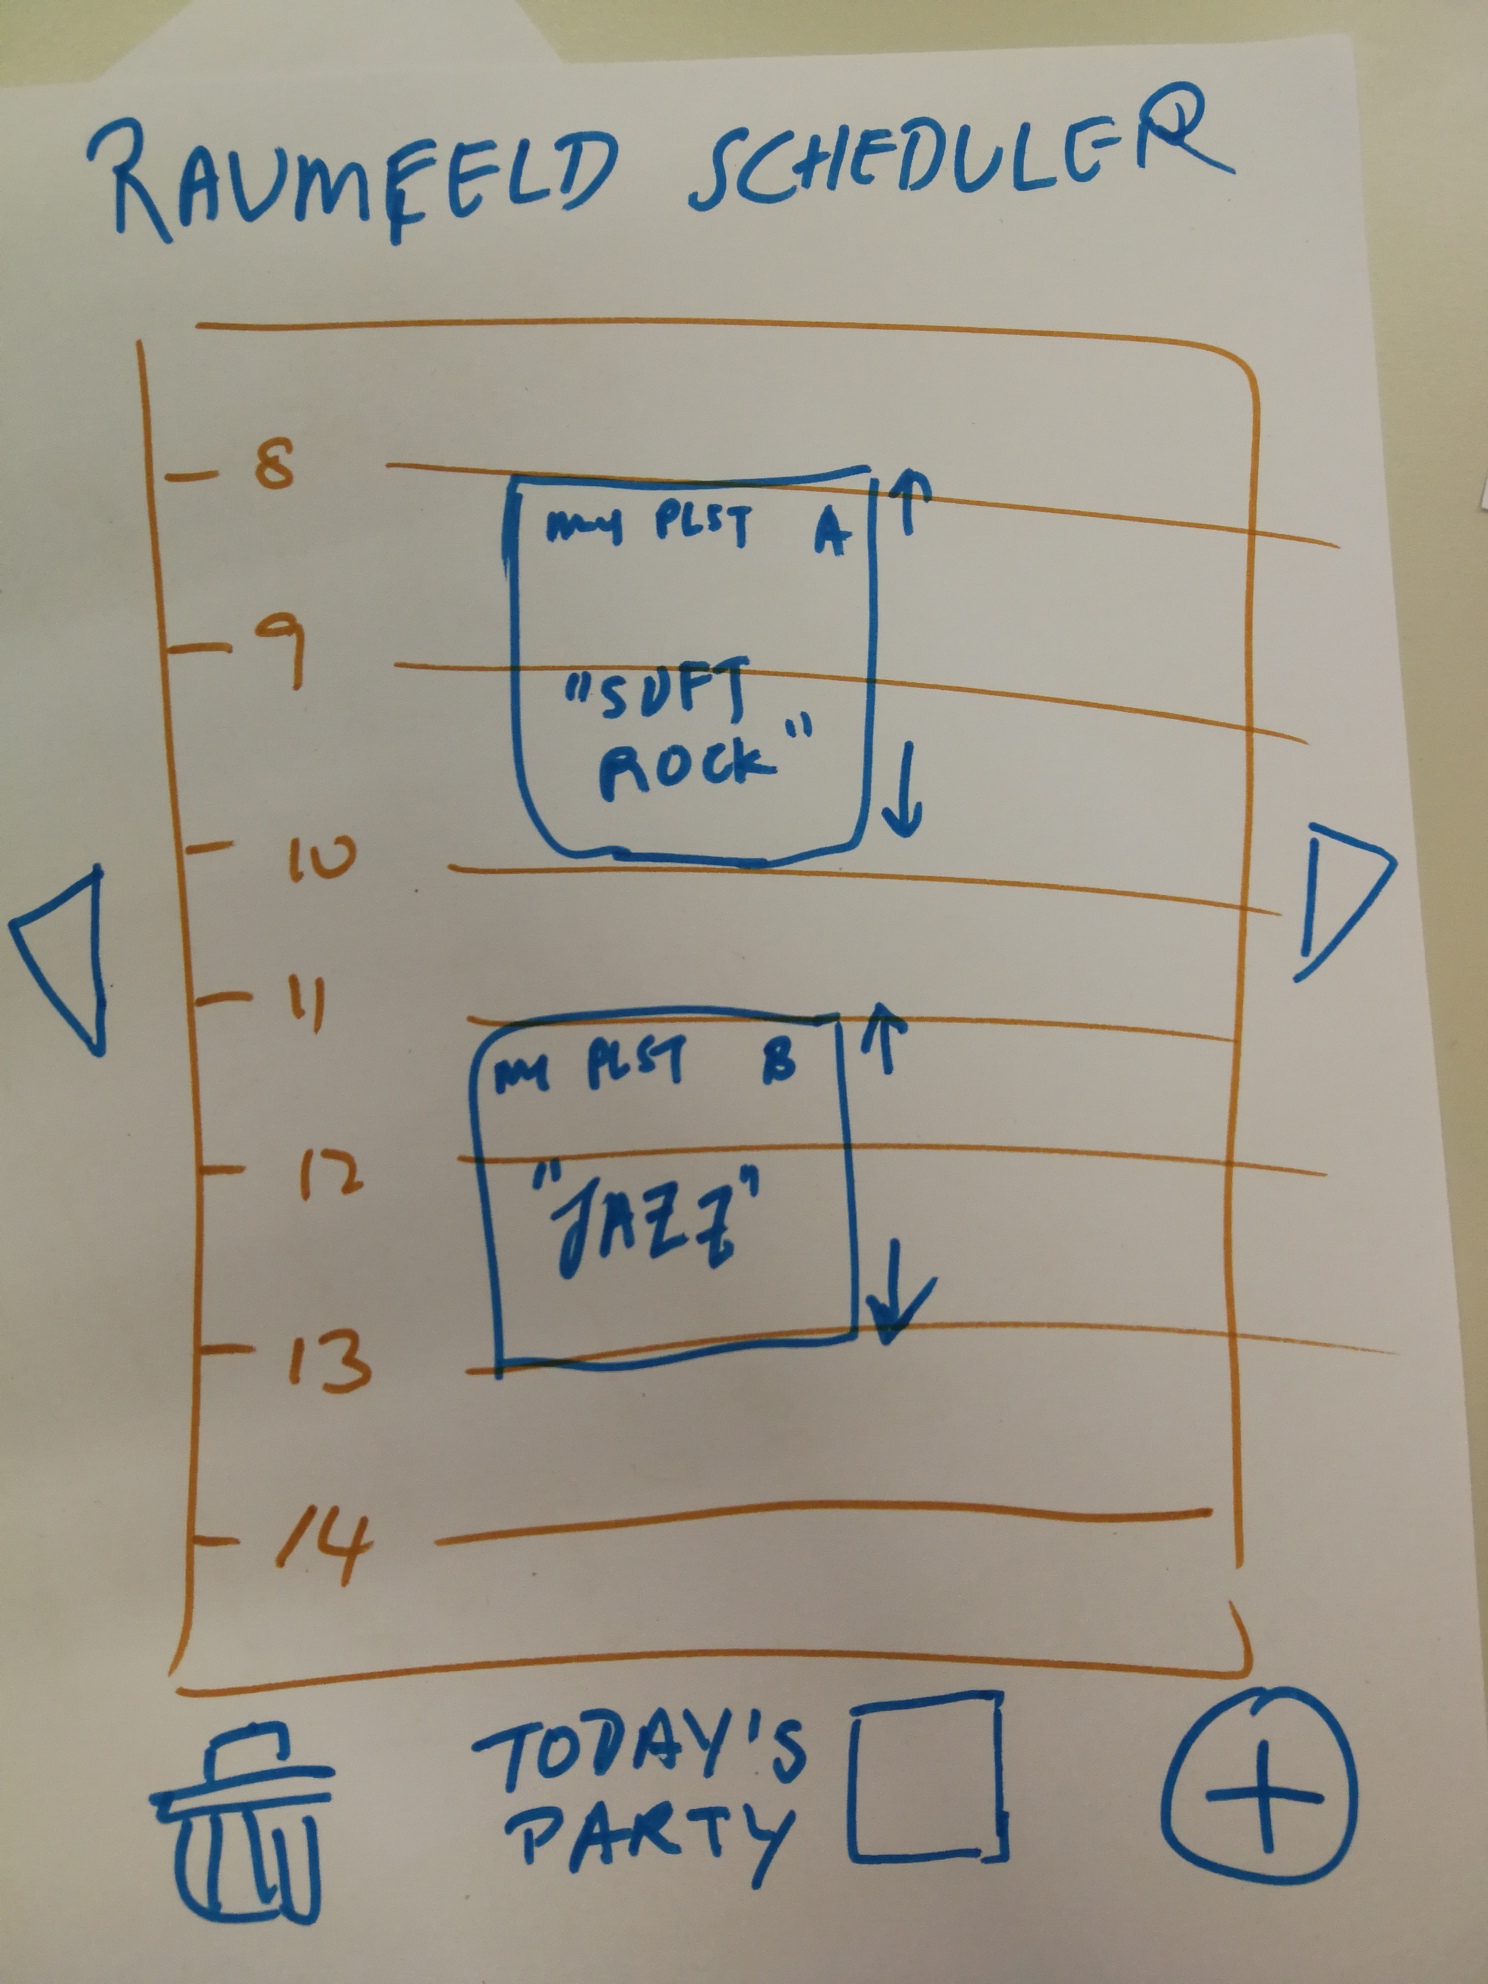 RAUMFELD SCHEDULER
8
my PLST A
9
"SOFT
ROCK"
10
11
my PLST B
12
"JAZZ"
13
14
TODAY'S
PARTY